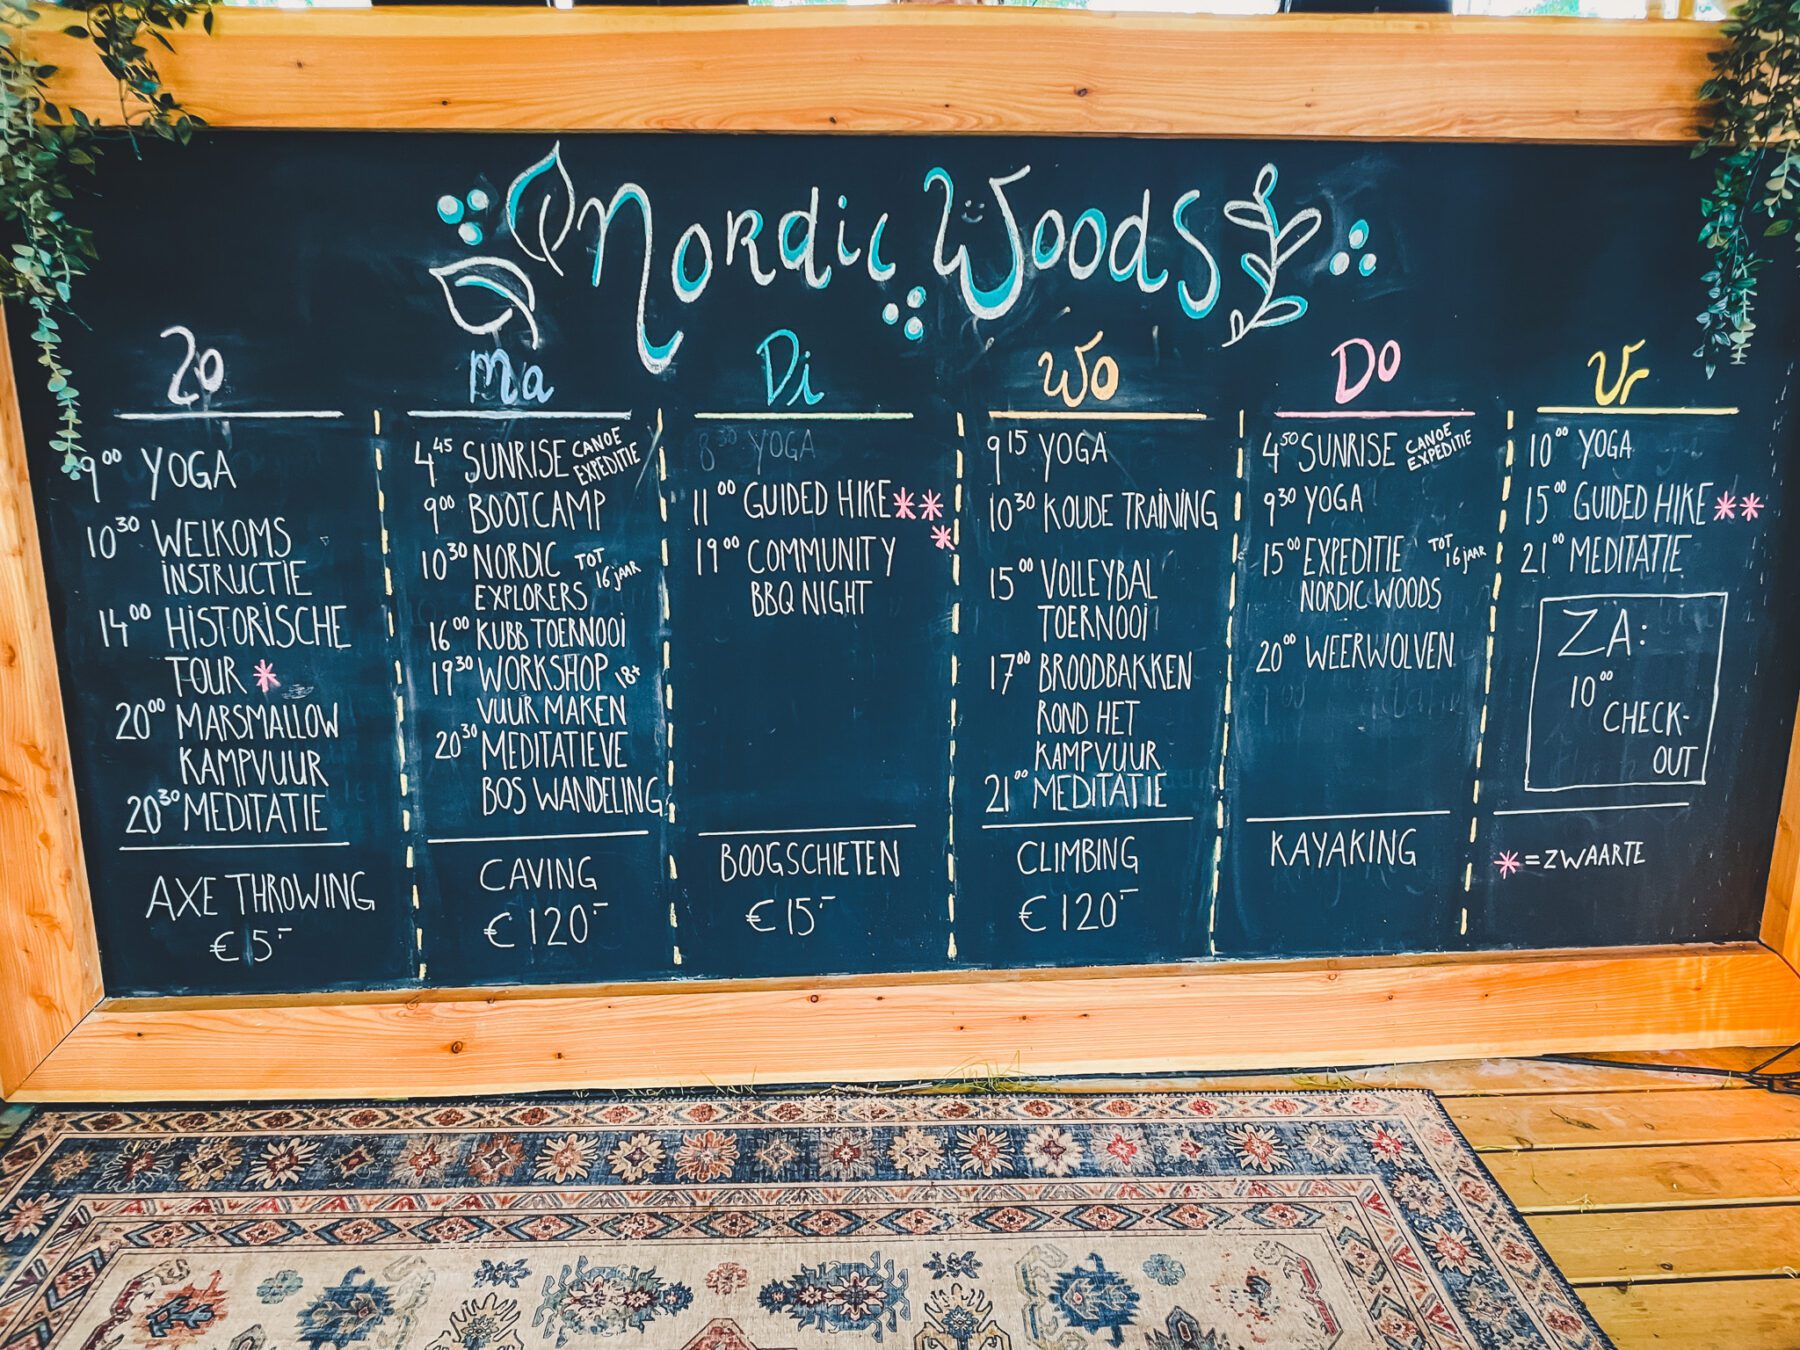 Nordic Woods
Zo
9⁰⁰ YOGA
10³⁰ WELKOMS
INSTRUCTIE
14⁰⁰ HISTORISCHE
TOUR *
20⁰⁰ MARSMALLOW
KAMPVUUR
20³⁰ MEDITATIE
AXE THROWING
€ 5.-
Ma
4⁴⁵ SUNRISE CANOE
EXPEDITIE
9⁰⁰ BOOTCAMP
10³⁰ NORDIC TOT
EXPLORERS 16 JAAR
16⁰⁰ KUBB TOERNOOI
19³⁰ WORKSHOP 18+
VUUR MAKEN
20³⁰ MEDITATIEVE
BOS WANDELING
CAVING
€ 120.-
Di
8³⁰ YOGA
11⁰⁰ GUIDED HIKE **
*
19⁰⁰ COMMUNITY
BBQ NIGHT
BOOGSCHIETEN
€ 15.-
Wo
9¹⁵ YOGA
10³⁰ KOUDE TRAINING
15⁰⁰ VOLLEYBAL
TOERNOOI
17⁰⁰ BROODBAKKEN
ROND HET
KAMPVUUR
21⁰⁰ MEDITATIE
CLIMBING
€ 120.-
Do
4⁵⁰ SUNRISE CANOE
EXPEDITIE
9³⁰ YOGA
15⁰⁰ EXPEDITIE TOT
NORDIC WOODS 16 JAAR
20⁰⁰ WEERWOLVEN
KAYAKING
Vr
10⁰⁰ YOGA
15⁰⁰ GUIDED HIKE **
21⁰⁰ MEDITATIE
ZA:
10⁰⁰
CHECK-
OUT
* = ZWAARTE